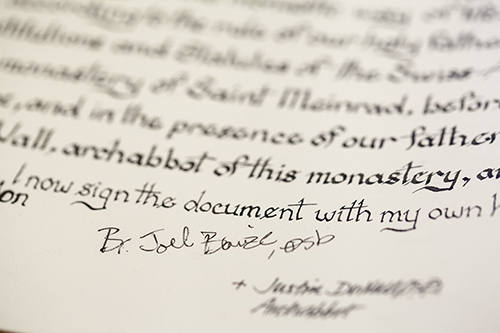 according to the rule of our holy father
and Statutes of the Swiss
monastery of Saint Meinrad, before
and in the presence of our father
Wall, archabbot of this monastery, an
I now sign the document with my own h
on
Br. Joel Blaize, OSB
+ Justin
Archabbot